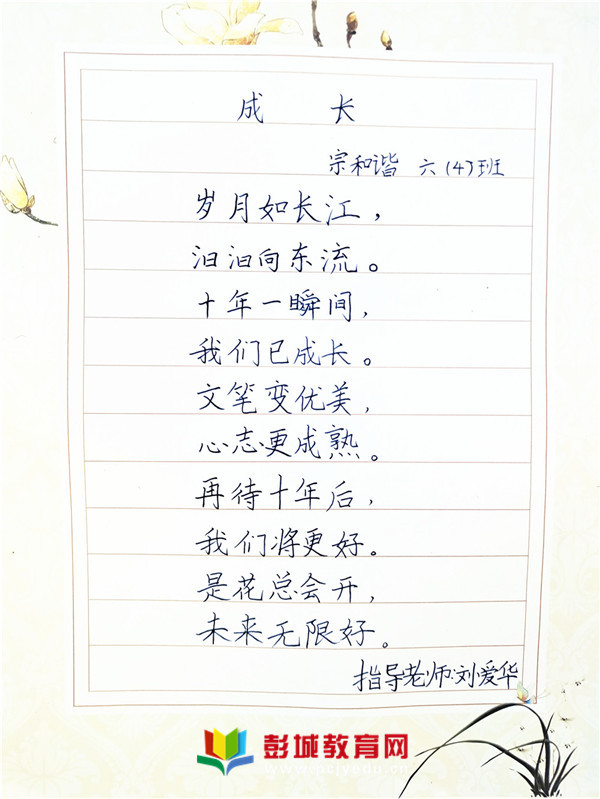 成 长
宗和谐 六(4)班
岁月如长江，
汩汩向东流。
十年一瞬间，
我们已成长。
文笔变优美，
心志更成熟。
再待十年后，
我们将更好。
是花总会开，
未来无限好。
指导老师:刘爱华
彭城教育网